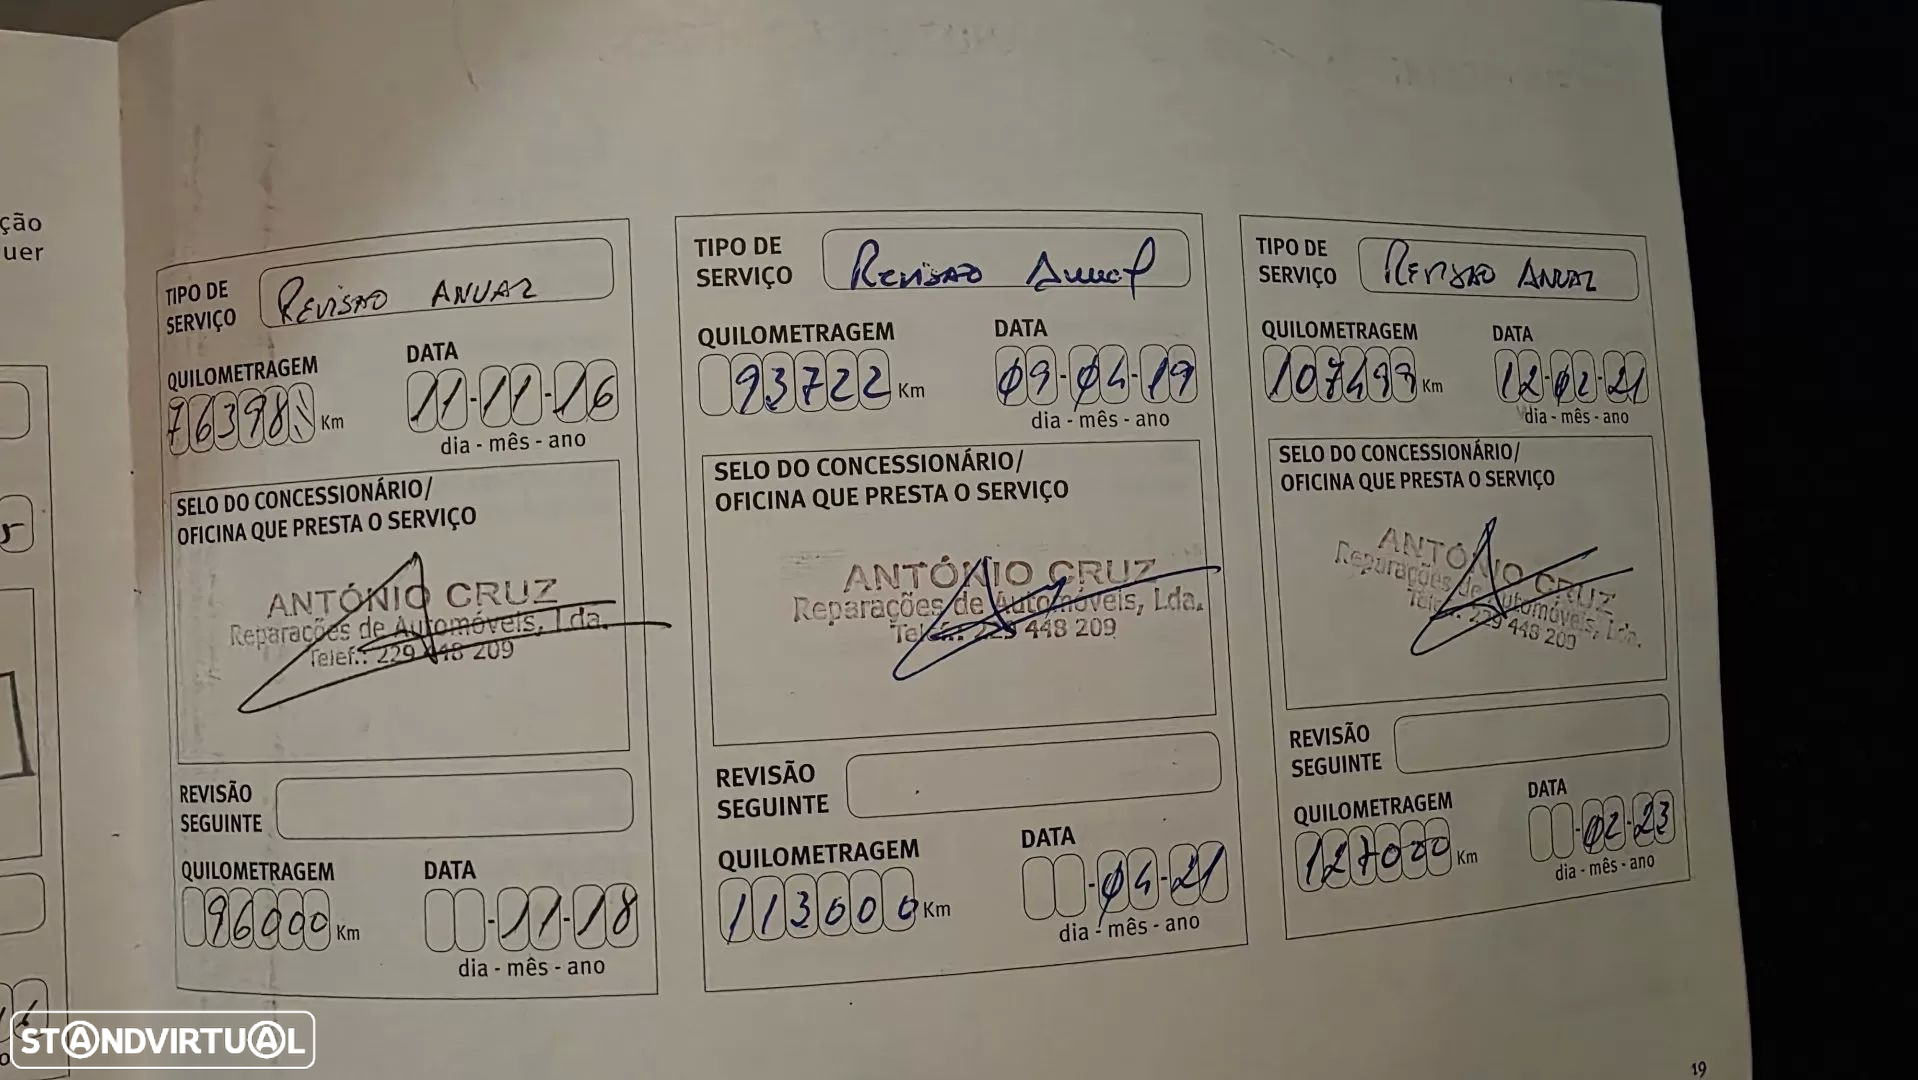 ção
uer
TIPO DE
SERVIÇO
REVISÃO ANUAL
QUILOMETRAGEM
76398 Km
DATA
11-11-16
dia - mês - ano
SELO DO CONCESSIONÁRIO/
OFICINA QUE PRESTA O SERVIÇO
ANTÓNIO CRUZ
Reparações de Automóveis, Lda.
Telef.: 229 448 209
REVISÃO
SEGUINTE
QUILOMETRAGEM
96000 Km
DATA
-11-18
dia - mês - ano
TIPO DE
SERVIÇO
REVISÃO Anual
QUILOMETRAGEM
93722 Km
DATA
09-04-19
dia - mês - ano
SELO DO CONCESSIONÁRIO/
OFICINA QUE PRESTA O SERVIÇO
ANTÓNIO CRUZ
Reparações de Automóveis, Lda.
Telef.: 229 448 209
REVISÃO
SEGUINTE
QUILOMETRAGEM
113000 Km
DATA
-04-21
dia - mês - ano
TIPO DE
SERVIÇO
REVISÃO ANUAL
QUILOMETRAGEM
107499 Km
DATA
12-02-21
dia - mês - ano
SELO DO CONCESSIONÁRIO/
OFICINA QUE PRESTA O SERVIÇO
ANTÓNIO CRUZ
Reparações de Automóveis, Lda.
Telef.: 229 448 209
REVISÃO
SEGUINTE
QUILOMETRAGEM
127000 Km
DATA
-02-23
dia - mês - ano
19
STANDVIRTUAL